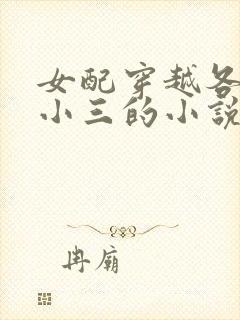 女配穿越各
小三的小說
冉廟